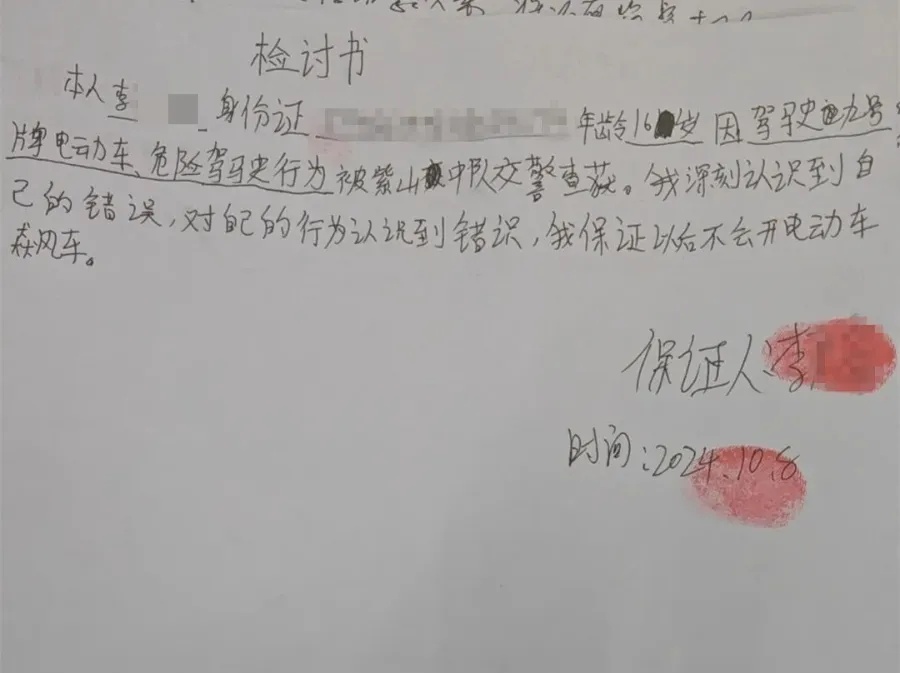 检讨书
本人李 身份证 年龄16岁 因驾驶电动号
牌电动车、危险驾驶行为被紫山中队交警查获。我深刻认识到自
己的错误,对自己的行为认识到错误,我保证以后不会开电动车
猋风车。
保证人:李
时间:2024.10.8